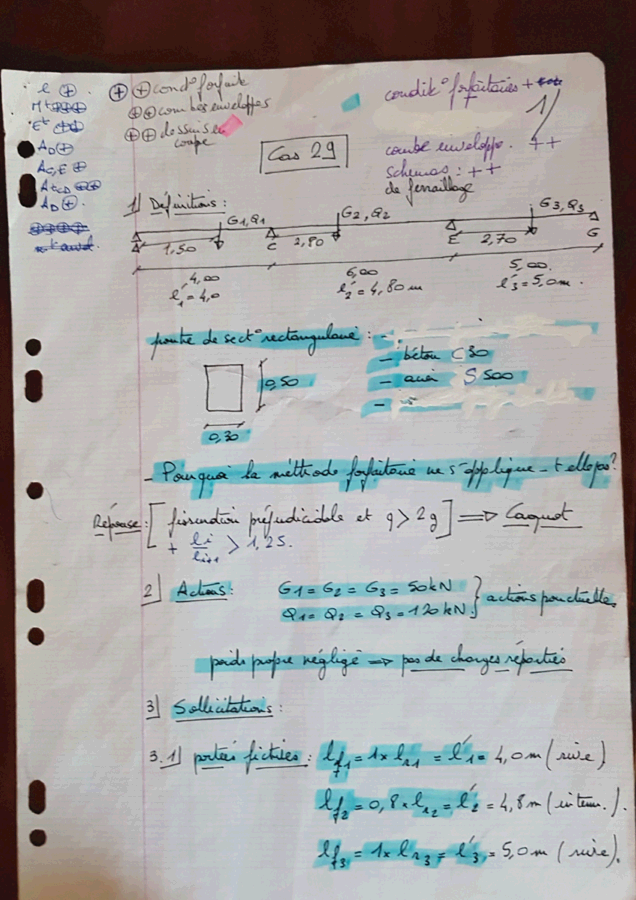 l ⊕
M+ ⊕⊕⊕
⊕ ⊕ condº forfait
⊕⊕ courbes enveloppes
⊕⊕ dessins en
coupe
AD ⊕
AD ⊕
conditº forfaitaires +
1
courbe enveloppe. ++
Schemas : ++
de ferraillage
Cas 29
1) Définitions :
G1, Q1
G2, Q2
G3, Q3
C
E
G
1,50
2,80
2,70
4,00
6,00
5,00
l'1 = 4,0
l'2 = 4,80 m
l'3 = 5,0 m.
poutre de sectº rectangulaire :
- béton C30
- acier S 500
0,50
0,30
- Pourquoi la méthode forfaitaire ne s'applique-t-elle pas?
Réponse : [fissuration préjudiciable et q > 2g] ⟹ Caquot
+ li/li±1 > 1,25.
2) Actions : G1 = G2 = G3 = 50 kN
Q1 = Q2 = Q3 = 120 kN } actions ponctuelles
poids propre négligé ⟹ pas de charges réparties
3) Sollicitations :
3.1) portées fictives : lf1 = 1 × lr1 = l'1 = 4,0 m (rive)
lf2 = 0,8 × lr2 = l'2 = 4,8 m (interm.).
lf3 = 1 × lr3 = l'3 = 5,0 m (rive).